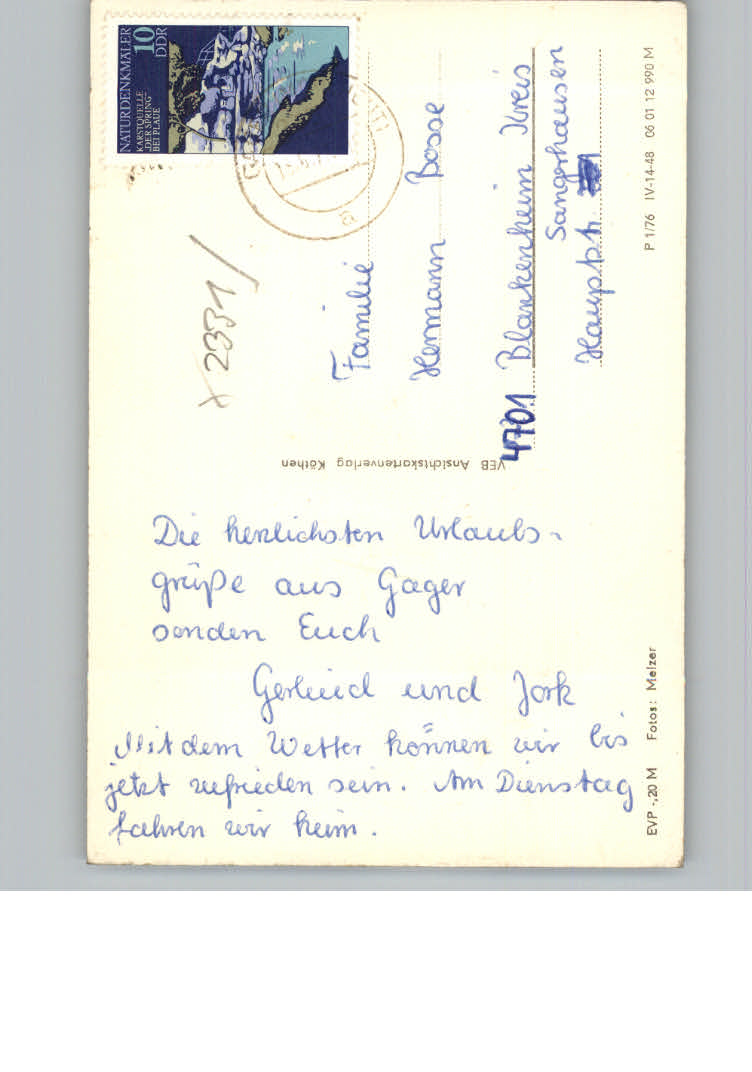 Die herzlichsten Urlaubs-
grüße aus Gager
senden Euch
Gerlind und Jork
Mit dem Wetter können wir bis
jetzt zufrieden sein. Am Dienstag
fahren wir heim.
NATURDENKMÄLER
10
DDR
KARSTQUELLE
„DER SPRING"
BEI PLAUE
x 2331/
Familie
Hermann Bosse
4701 Blankenheim Kreis
Sangerhausen
Hauptstr.
VEB Ansichtskartenverlag Köthen
P 1/76 IV-14-48 06 01 12 990 M
EVP -,20 M Fotos: Melzer